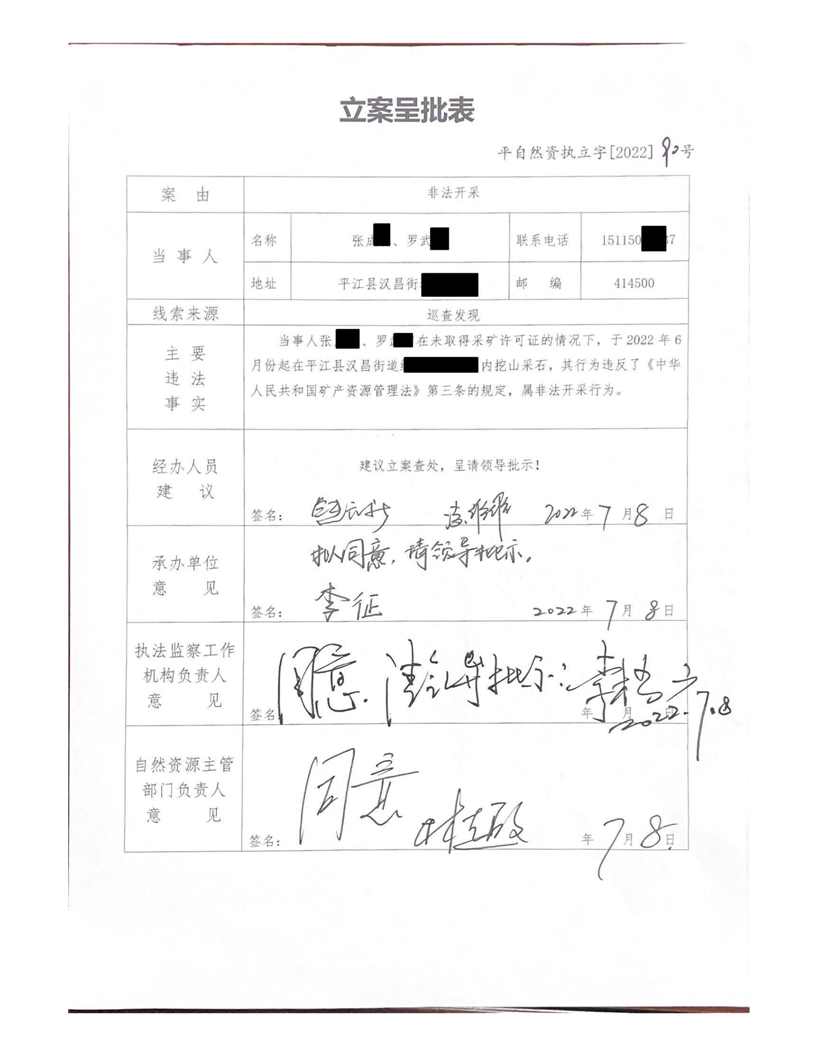 立案呈批表
平自然资执立字[2022] 号
案 由 非法开采
当 事 人 名称 张成 、罗武 联系电话 151150 37
地址 平江县汉昌街 邮 编 414500
线索来源 巡查发现
主 要
违 法
事 实
当事人张 、罗 在未取得采矿许可证的情况下，于 2022 年 6
月份起在平江县汉昌街道 内挖山采石，其行为违反了《中华
人民共和国矿产资源管理法》第三条的规定，属非法开采行为。
经办人员
建 议
建议立案查处，呈请领导批示！
签名： 2022 年 7 月 8 日
承办单位
意 见
拟同意，请领导批示。
签名： 李征 2022 年 7 月 8 日
执法监察工作
机构负责人
意 见
同意，请领导批示：
签名 年 月 2022.7.8
自然资源主管
部门负责人
意 见
同意
签名： 年 7 月 8 日